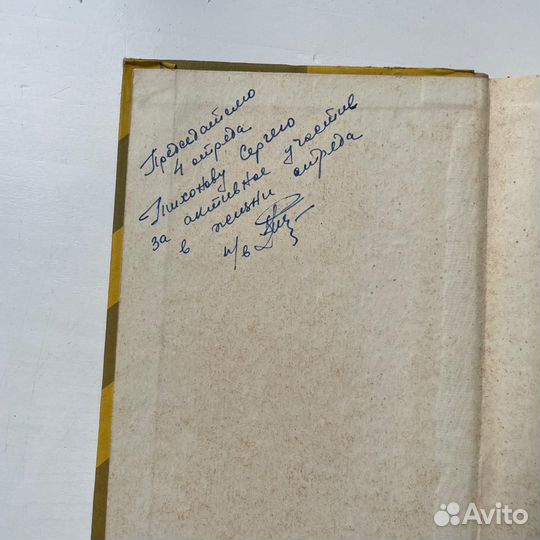 Председателю
4 отряда
Тихонову Сергею
за активное участие
в жизни отряда
п/в
Avito